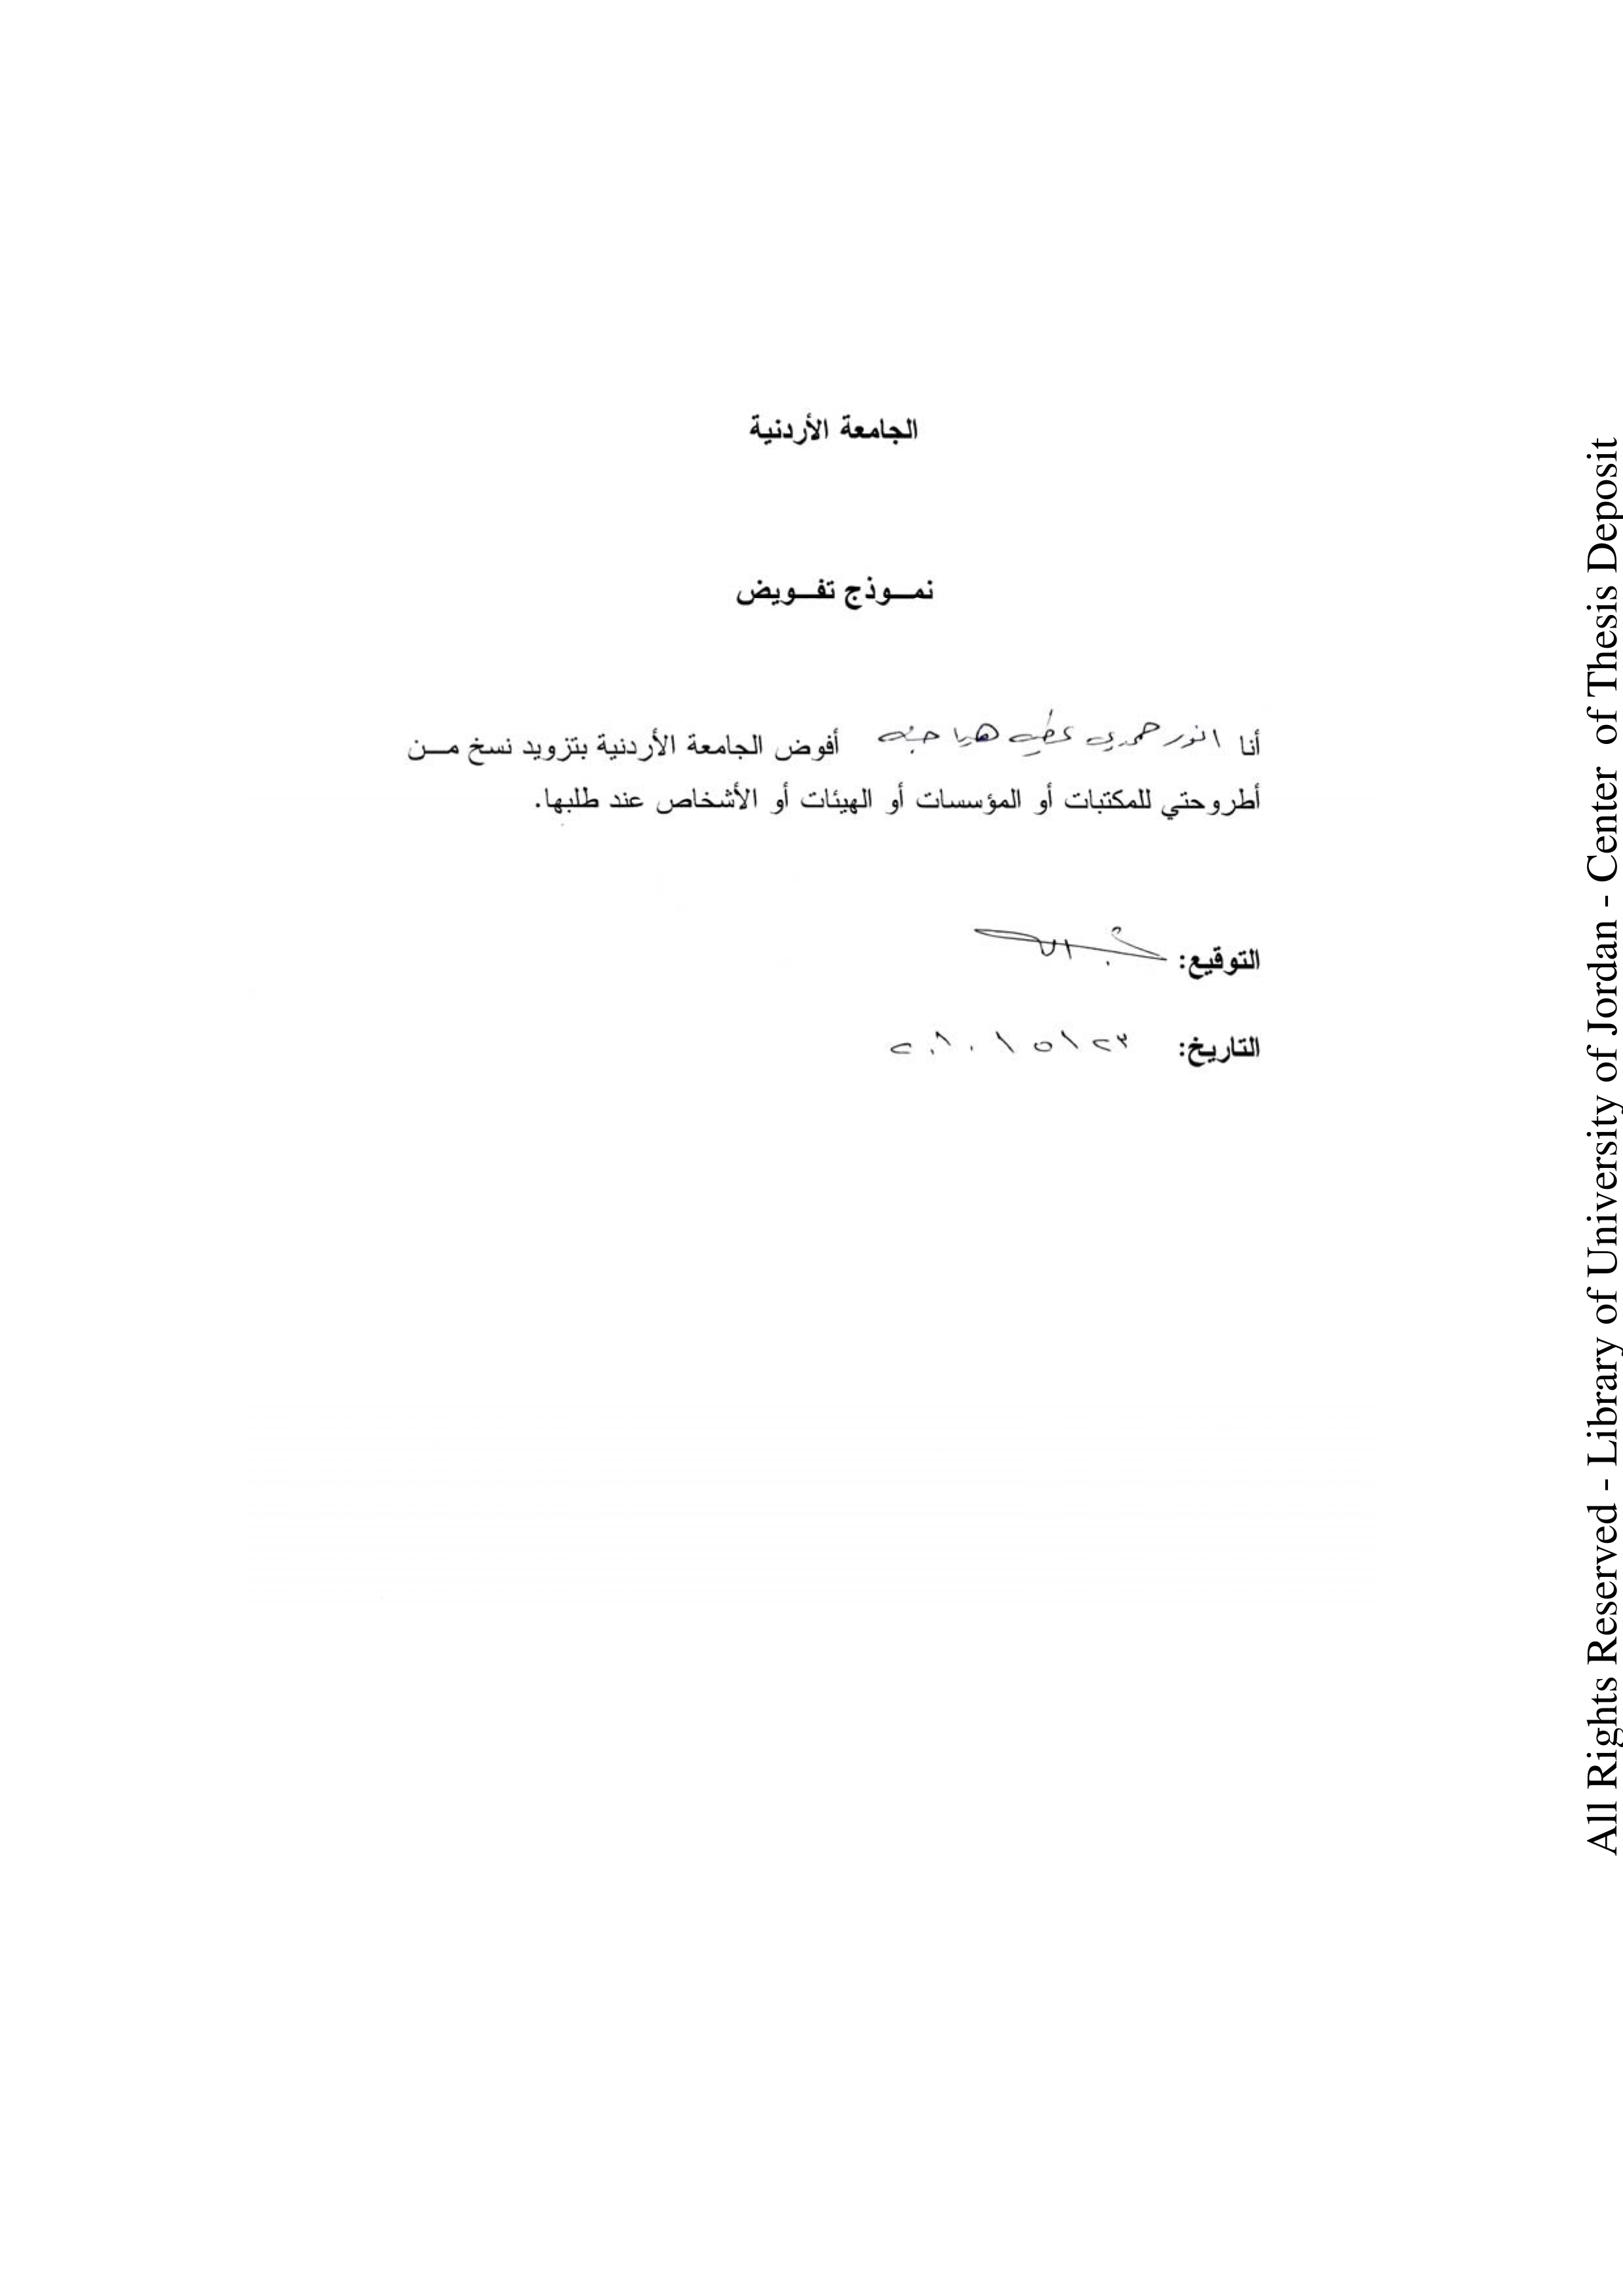 الجامعة الأردنية
نمـــوذج تفـــويض
أنا انور حمدي عطيه هياجنه أفوض الجامعة الأردنية بتزويد نسخ مـــن
أطروحتي للمكتبات أو المؤسسات أو الهيئات أو الأشخاص عند طلبها.
التوقيع:
التاريخ: ٢٣ / ٥ / ٢٠١٠
All Rights Reserved - Library of University of Jordan - Center of Thesis Deposit